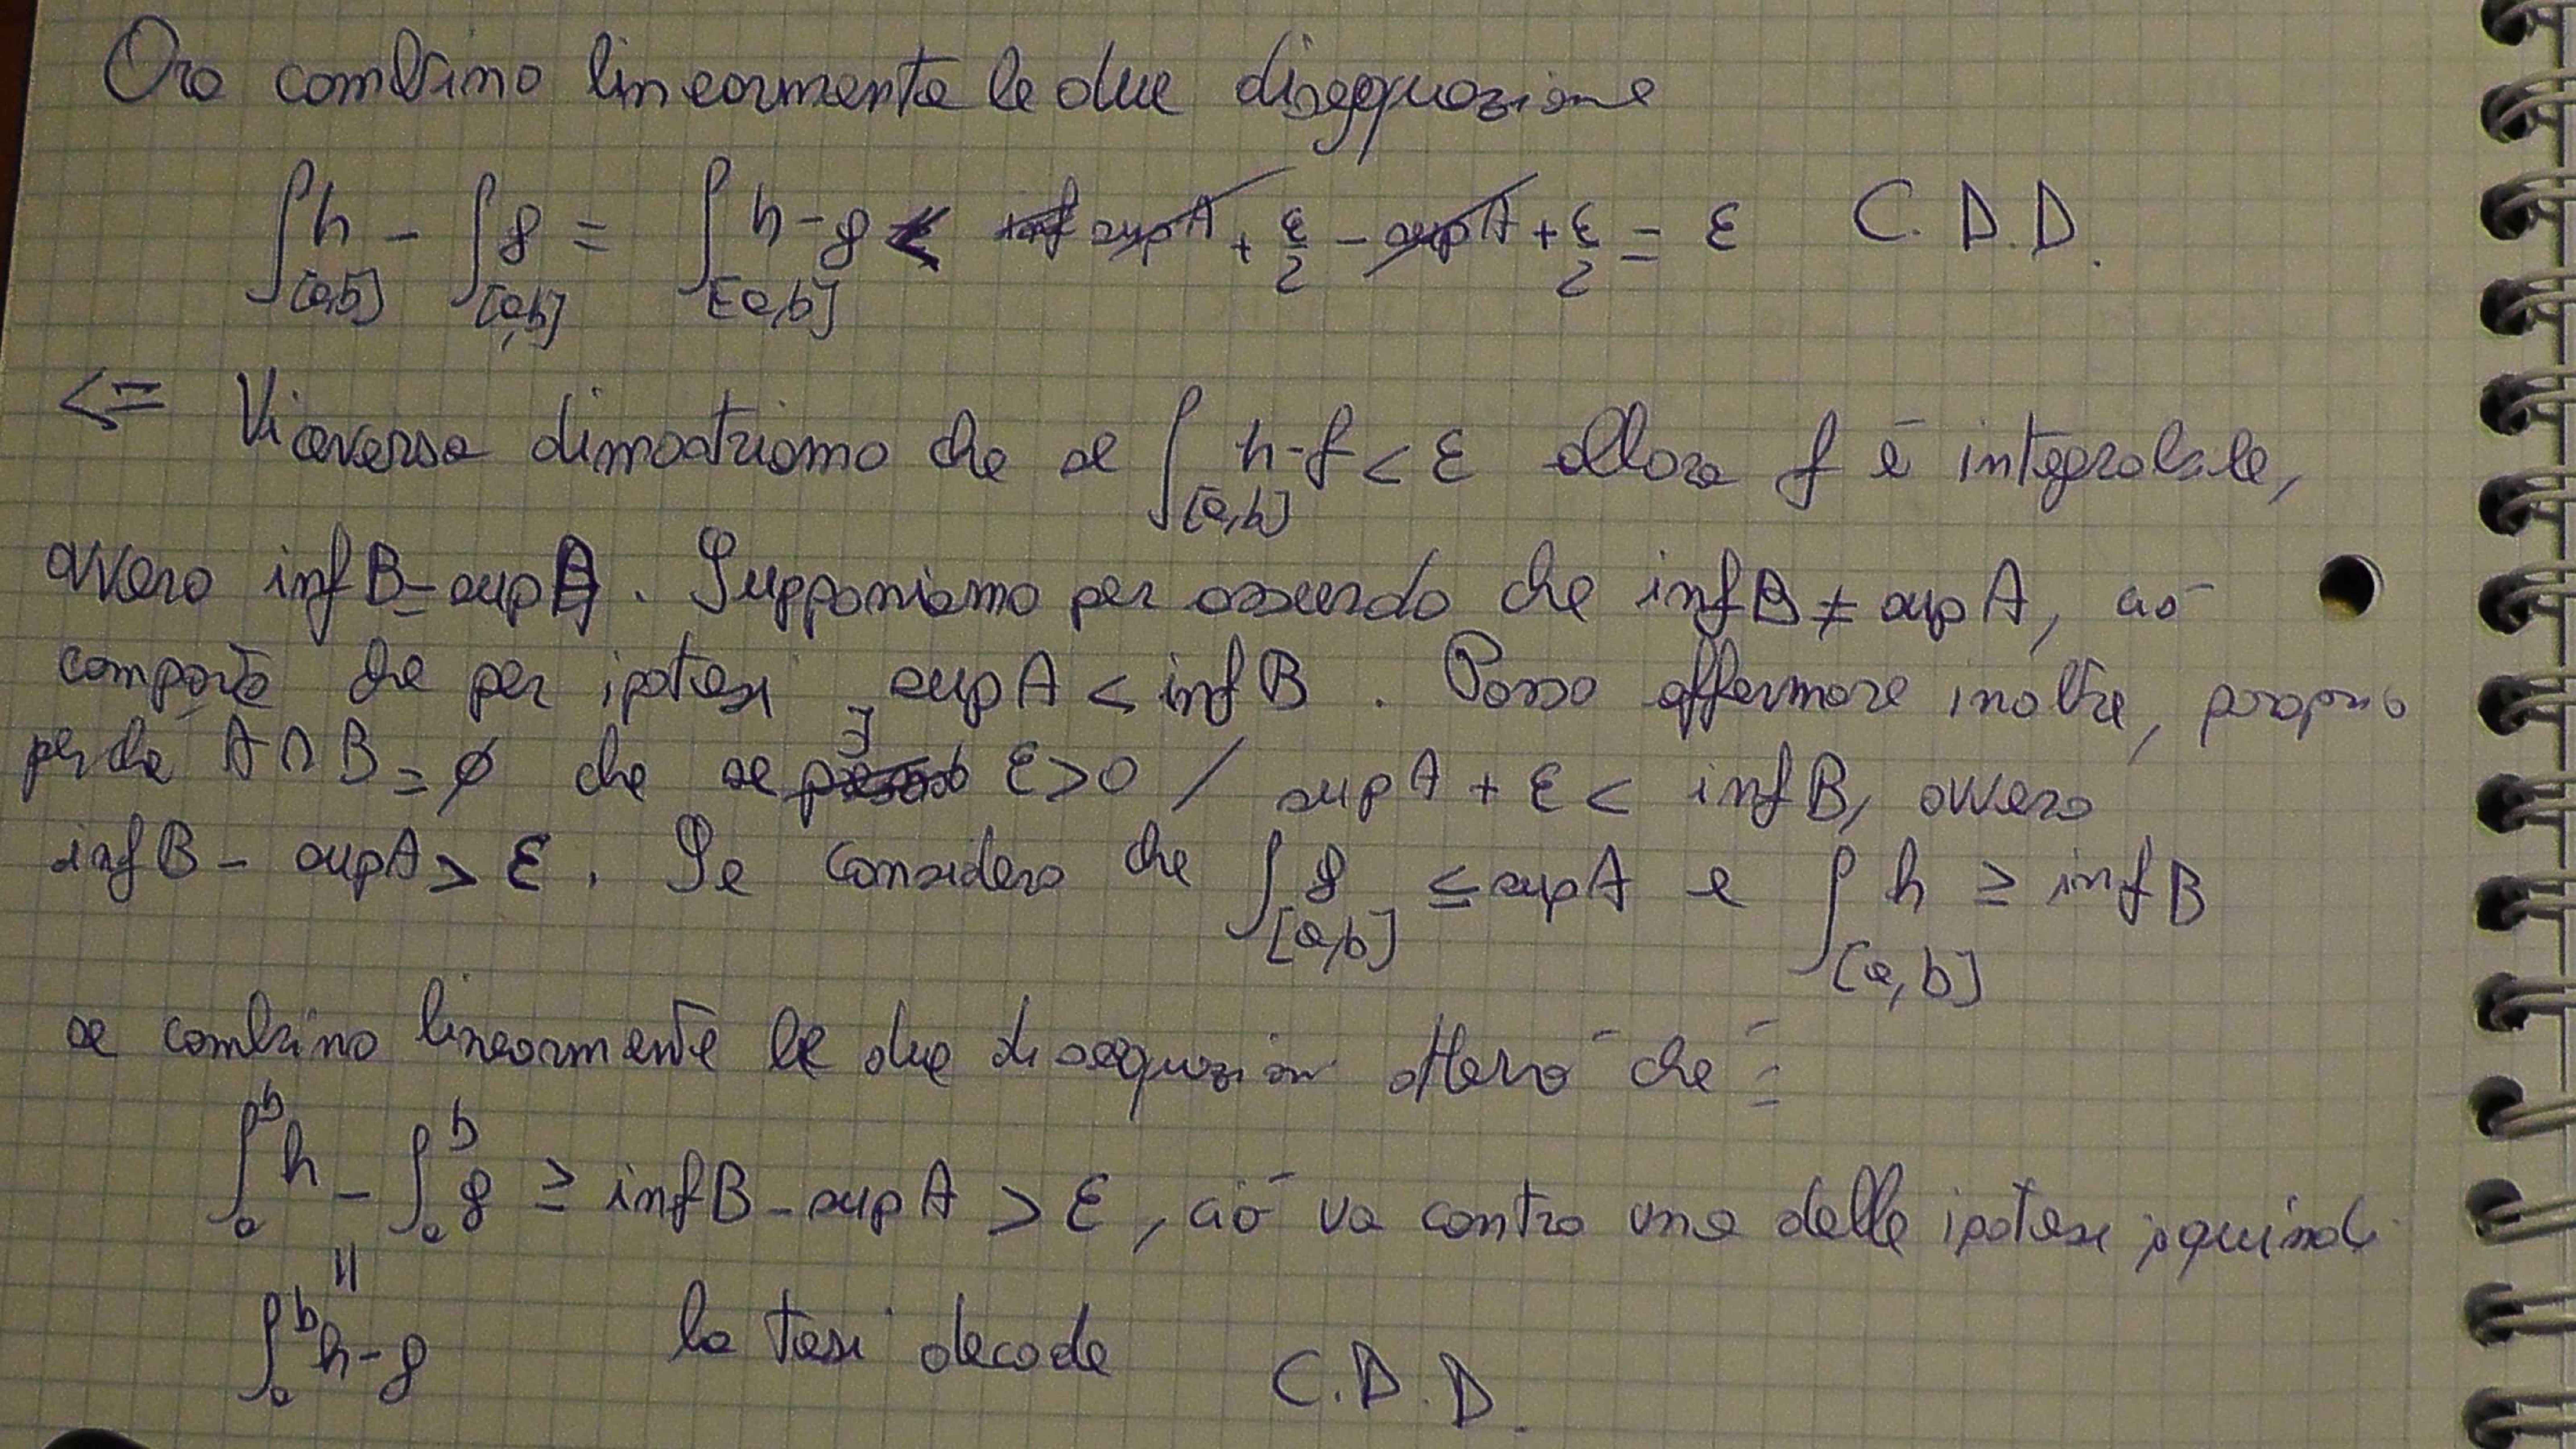 Ora combino linearmente le due diseqquazione
∫[a,b] h - ∫[a,b] g = ∫[a,b] h-g < sup A + ε/2 - sup A + ε/2 = ε C.D.D.
<= Viceversa dimostriamo che se ∫[a,b] h-f < ε allora f è integrabile,
ovvero inf B = sup A. Supponiamo per assurdo che inf B ≠ sup A, ciò
comporta che per ipotesi sup A < inf B. Posso affermare inoltre, proprio
perché A ∩ B = ∅ che se ∃ ε>0 / sup A + ε < inf B, ovvero
inf B - sup A > ε. Se considero che ∫[a,b] g ≤ sup A e ∫[a,b] h ≥ inf B
se combino linearmente le due disequazioni otterrò che:
∫ₐᵇ h - ∫ₐᵇ g ≥ inf B - sup A > ε, ciò va contro una delle ipotesi, quindi
=
∫ₐᵇ h-g la tesi decade C.D.D.